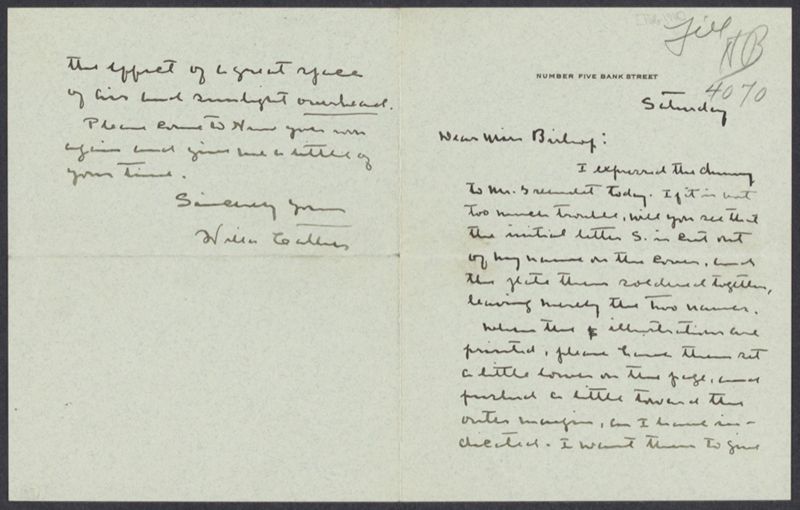 File
HB
4070
NUMBER FIVE BANK STREET
Saturday
Dear Miss Bishop:
I expressed the dummy
to Mr. today. If it is not
too much trouble, will you see that
the initial letter S. is cut out
of my name on the cover, and
the plate then soldered together,
leaving merely the two names.
When the illustrations are
printed, please have them set
a little lower on the page, and
pushed a little toward the
outer margin, as I have in-
dicated. I want them to give
the effect of a great space
of air and sunlight overhead.
Please come to New York soon
again and give me a little of
your time.
Sincerely yours
Willa Cather